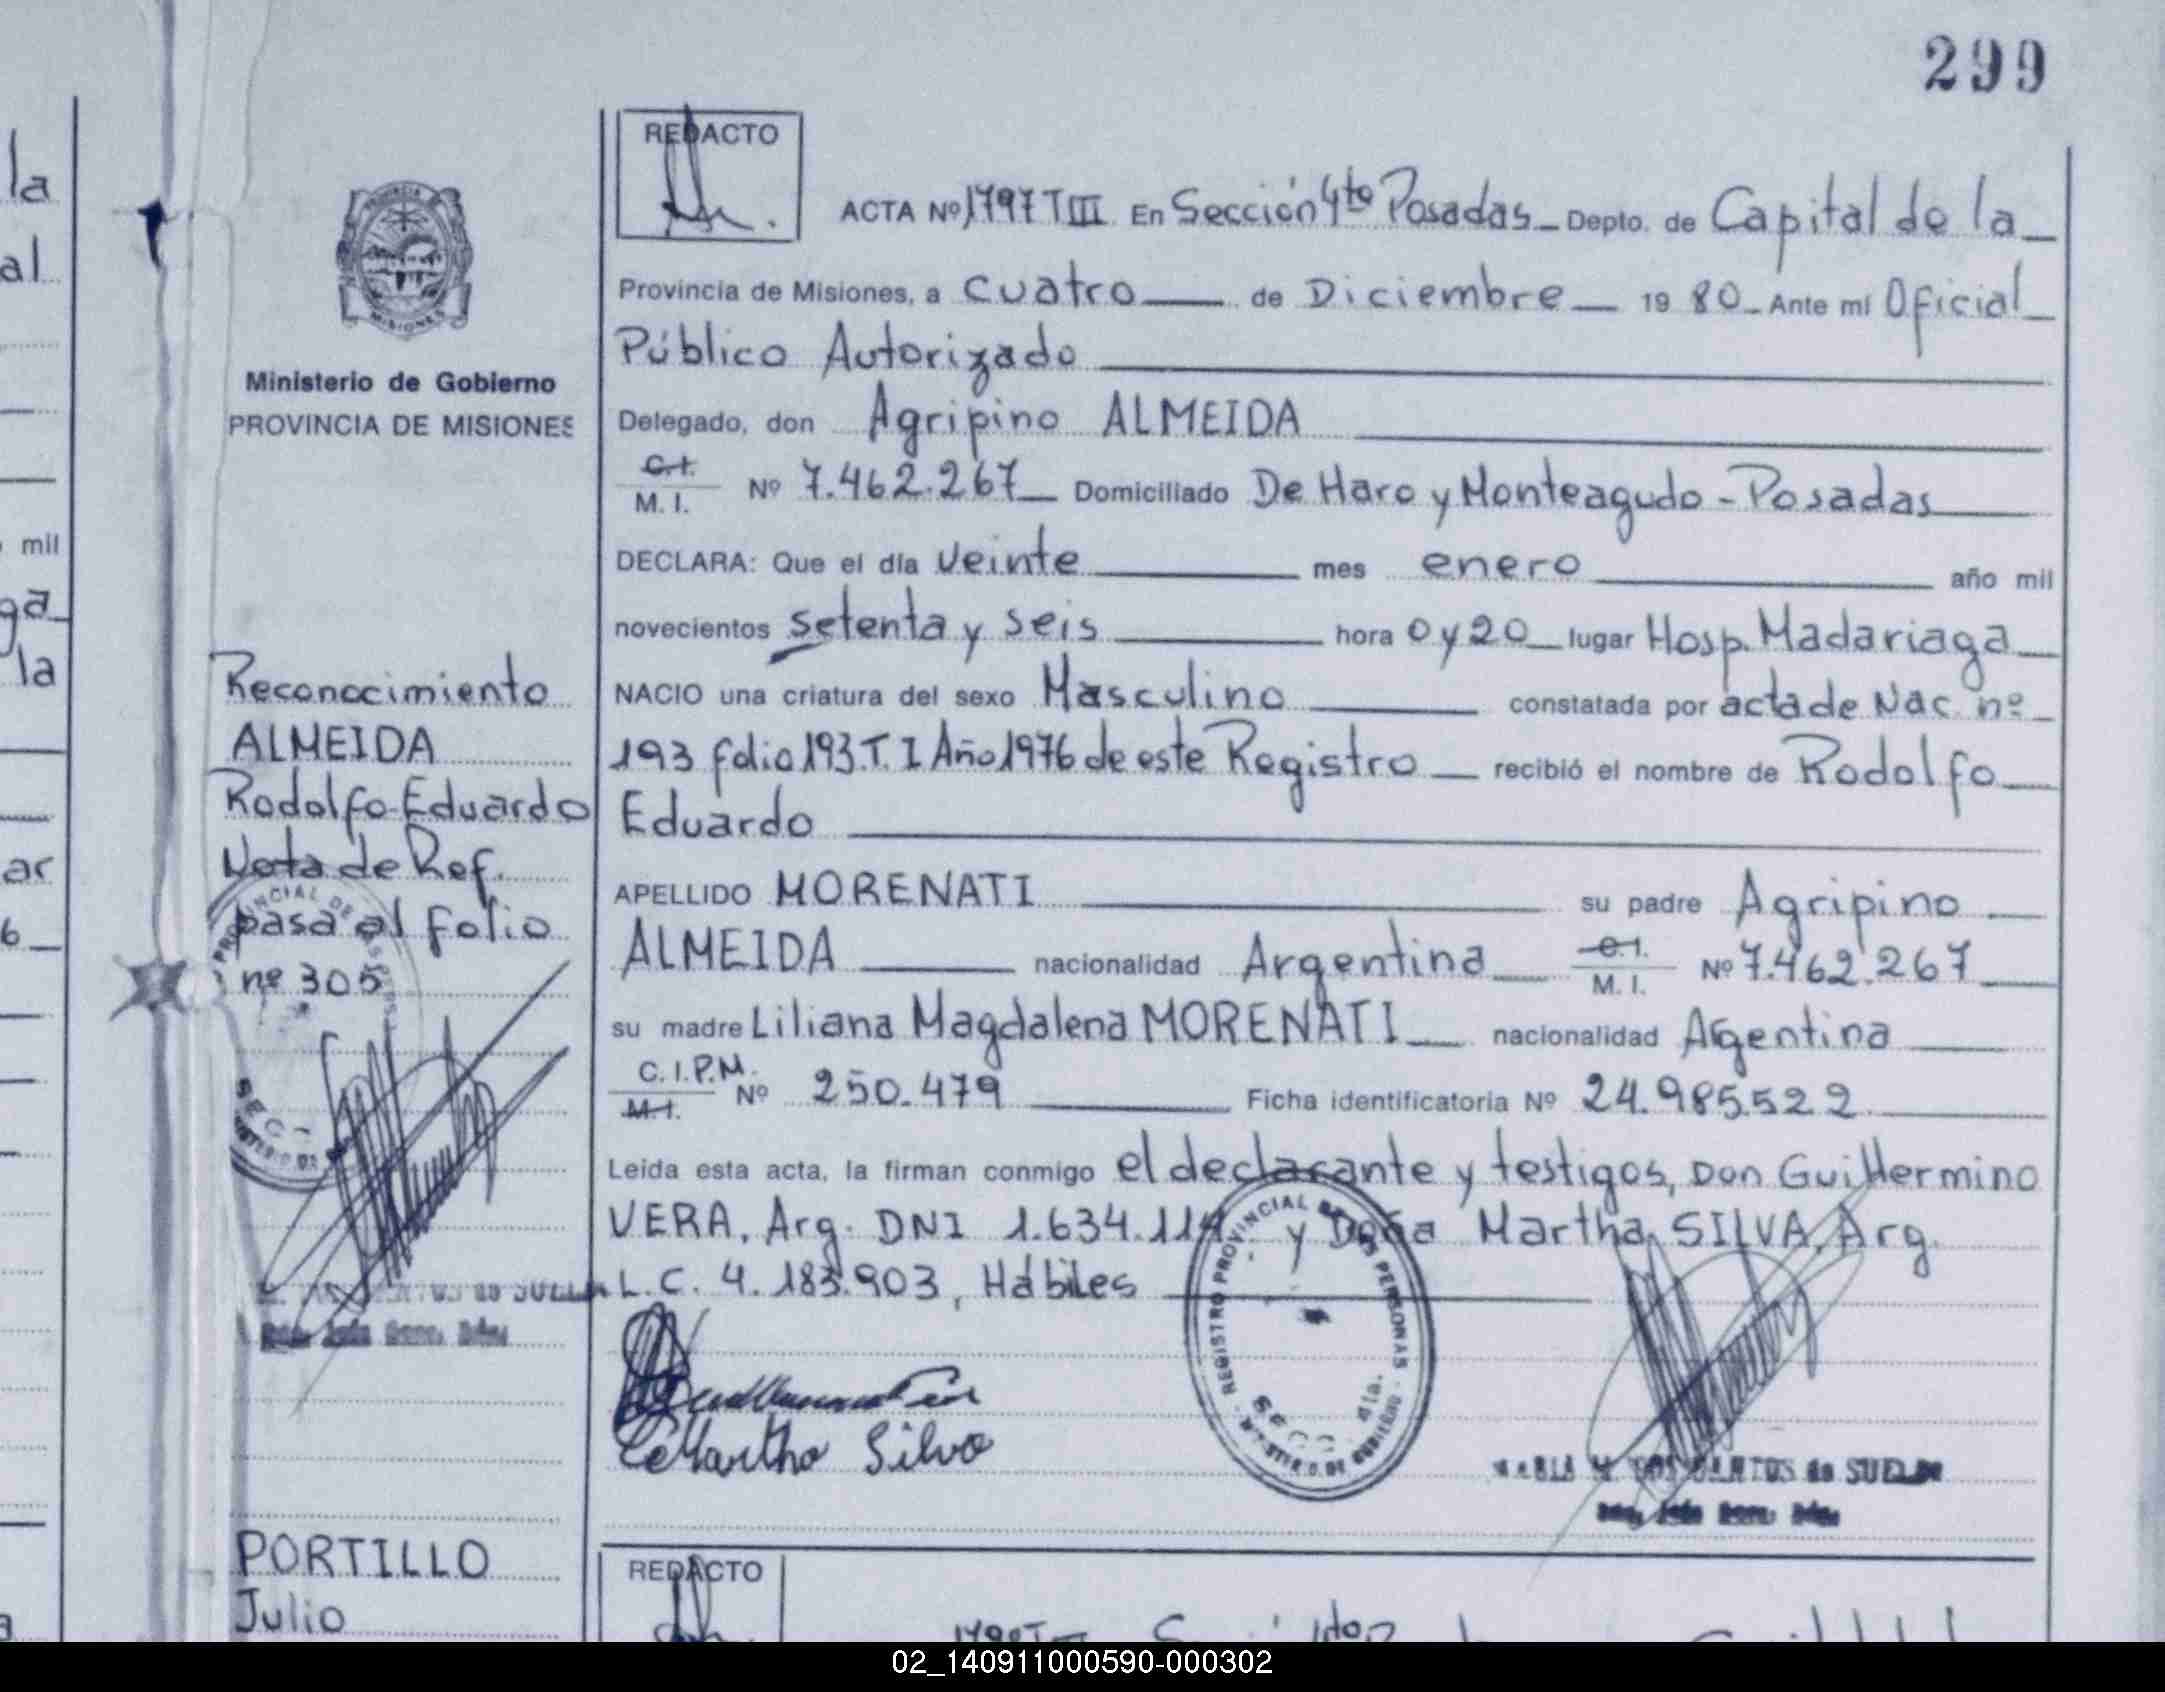 299
REDACTO
ACTA Nº 1797 T III En Sección 4ta Posadas_ Depto. de Capital de la_
Provincia de Misiones, a cuatro de Diciembre 19 80_ Ante mí Oficial
Público Autorizado
Delegado, don Agripino ALMEIDA
C.I. M. I. Nº 7.462.267_ Domiciliado De Haro y Monteagudo - Posadas
DECLARA: Que el día veinte mes enero año mil
novecientos setenta y seis hora 0 y 20 lugar Hosp. Madariaga
NACIO una criatura del sexo Masculino constatada por acta de Nac. nº
193 folio 193 T. I Año 1976 de este Registro recibió el nombre de Rodolfo
Eduardo
APELLIDO MORENATI su padre Agripino
ALMEIDA nacionalidad Argentina C.I. M. I. Nº 7.462.267
su madre Liliana Magdalena MORENATI nacionalidad Argentina
C.I.P.M. M.I. Nº 250.479 Ficha identificatoria Nº 24.985.522
Leída esta acta, la firman conmigo el declarante y testigos, Don Guillermino
VERA, Arg. DNI 1.634.114 y Doña Martha SILVA, Arg.
L.C. 4.183.903, Hábiles
Martha Silva
REGISTRO PROVINCIAL DE LAS PERSONAS
SECC. 4ta.
MINISTERIO DE GOBIERNO
de SUELDO
PROVINCIA
MISIONES
Ministerio de Gobierno
PROVINCIA DE MISIONES
Reconocimiento
ALMEIDA
Rodolfo Eduardo
Nota de Ref.
pasa al folio
nº 305
PORTILLO
Julio
REDACTO
la
al
mil
ga
la
ar
6
02_140911000590-000302